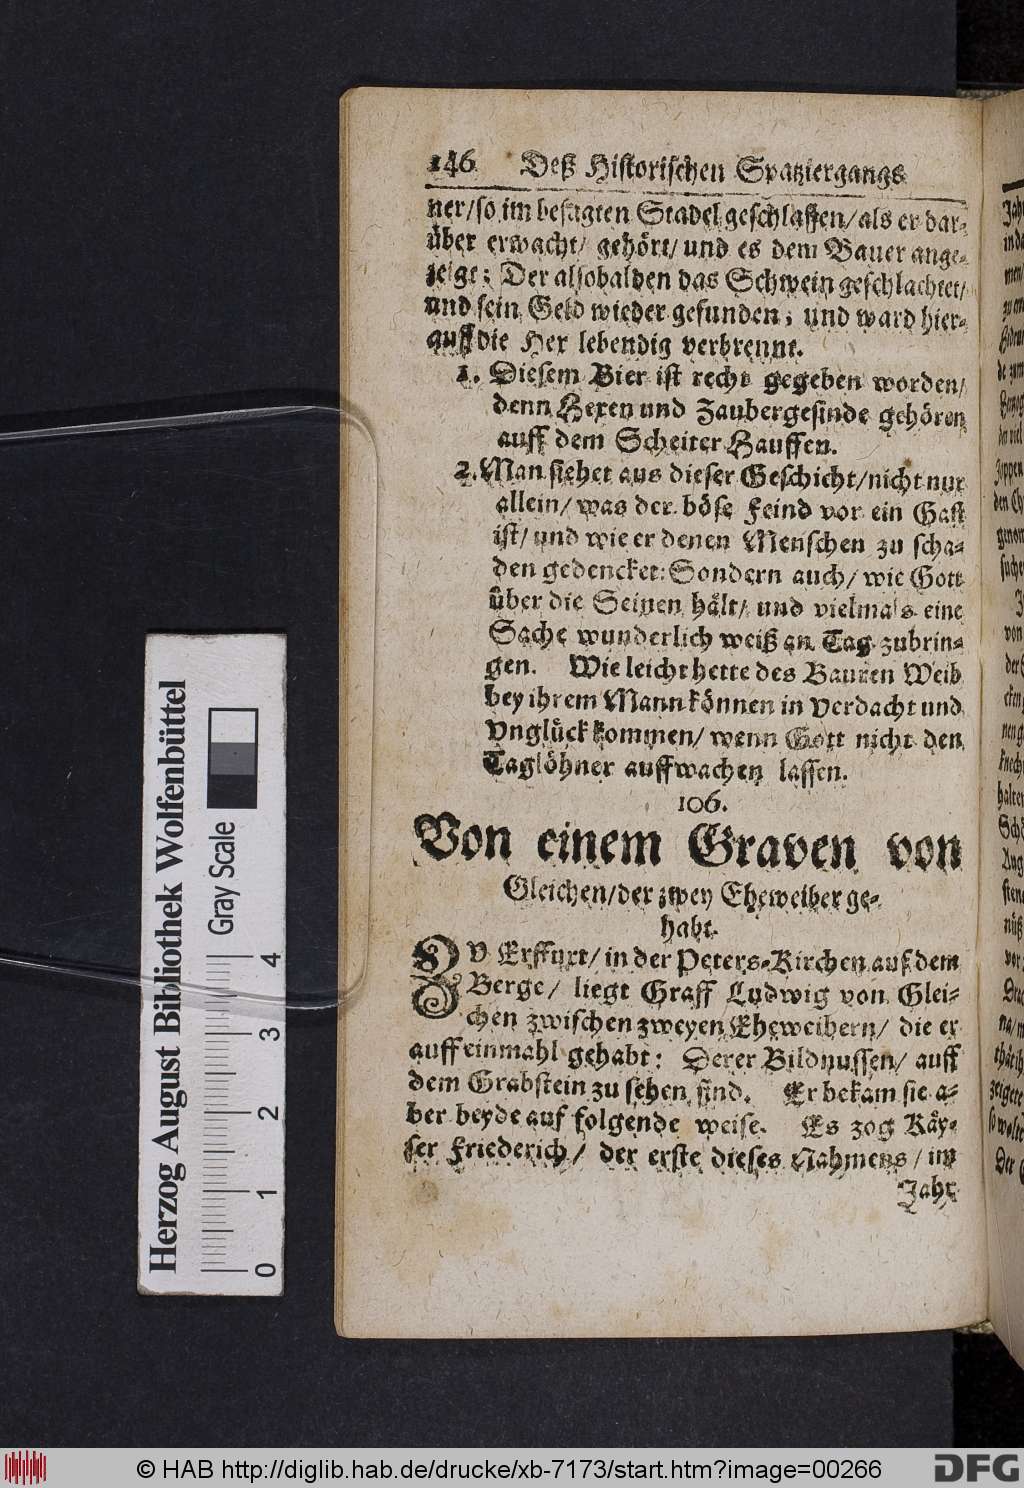 146 Deß Historischen Spatziergangs
ner/so im besagten Stadel geschlaffen/als er dar-
über erwacht/ gehört/ und es dem Bauer ange-
zeigt: Der alsobalden das Schwein geschlachtet/
und sein Geld wieder gefunden, und ward hier-
auff die Hex lebendig verbrennt.
1. Diesem Bier ist recht gegeben worden/
denn Hexen und Zaubergesinde gehören
auff dem Scheiter Hauffen.
2. Man siehet aus dieser Geschicht/nicht nur
allein/ was der böse Feind vor ein Gast
ist/ und wie er denen Menschen zu scha-
den gedencket: Sondern auch/ wie Gott
über die Seinen hält/ und vielmals eine
Sache wunderlich weiß an Tag zubrin-
gen. Wie leicht hette des Bauren Weib
bey ihrem Mann können in Verdacht und
Vnglück kommen/ wenn Gott nicht den
Taglöhner auffwachen lassen.
106.
Von einem Graven von
Gleichen/der zwey Eheweiber ge-
habt.
ZV Erffurt/ in der Peters-Kirchen auf dem
Berge/ liegt Graff Ludwig von Glei-
chen zwischen zweyen Eheweibern/ die er
auff einmahl gehabt: Derer Bildnussen/ auff
dem Grabstein zu sehen sind. Er bekam sie a-
ber beyde auf folgende weise. Es zog Käy-
ser Friederich/ der erste dieses Nahmens/ im
Jahr
Herzog August Bibliothek Wolfenbüttel
Gray Scale
0 1 2 3 4
© HAB http://diglib.hab.de/drucke/xb-7173/start.htm?image=00266
DFG